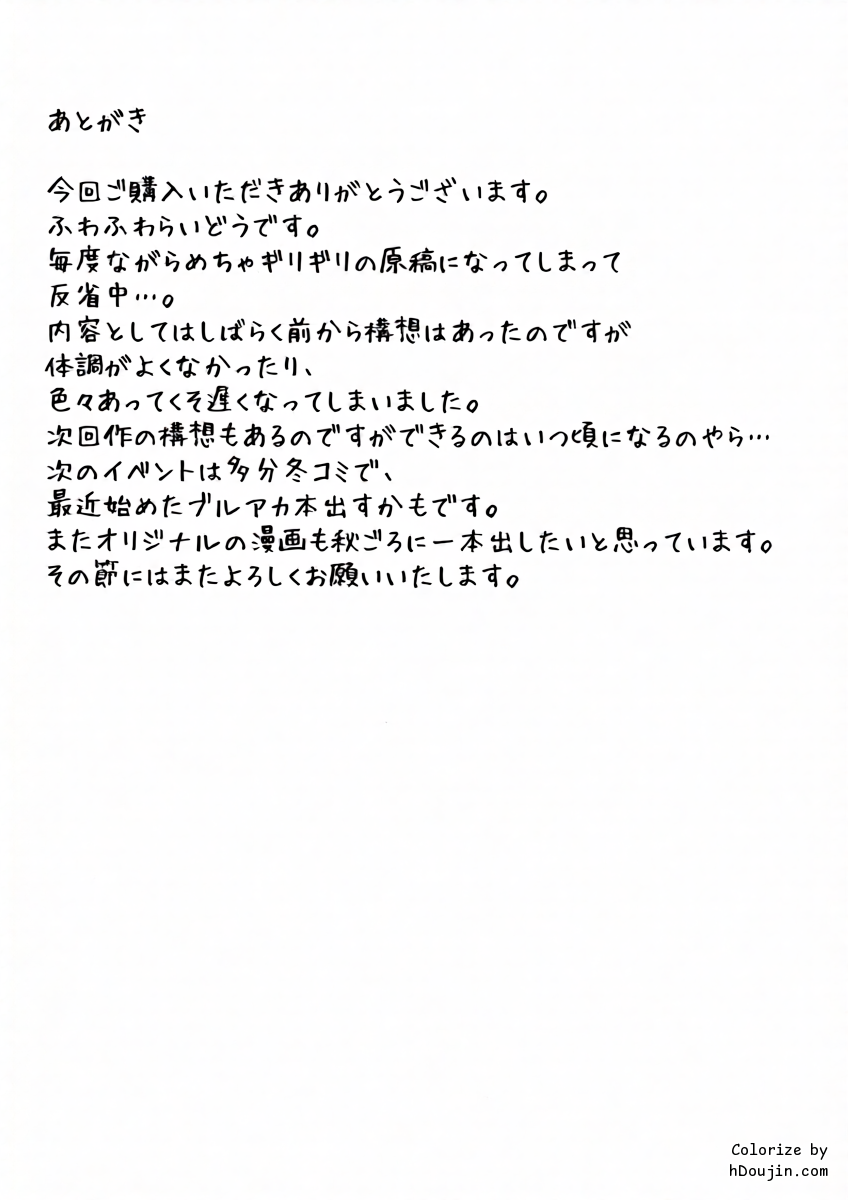 あとがき
今回ご購入いただきありがとうございます。
ふわふわらいどうです。
毎度ながらめちゃギリギリの原稿になってしまって
反省中…。
内容としてはしばらく前から構想はあったのですが
体調がよくなかったり、
色々あってくそ遅くなってしまいました。
次回作の構想もあるのですができるのはいつ頃になるのやら…
次のイベントは多分冬コミで、
最近始めたブルアカ本出すかもです。
またオリジナルの漫画も秋ごろに一本出したいと思っています。
その節にはまたよろしくお願いいたします。
Colorize by
hDoujin.com